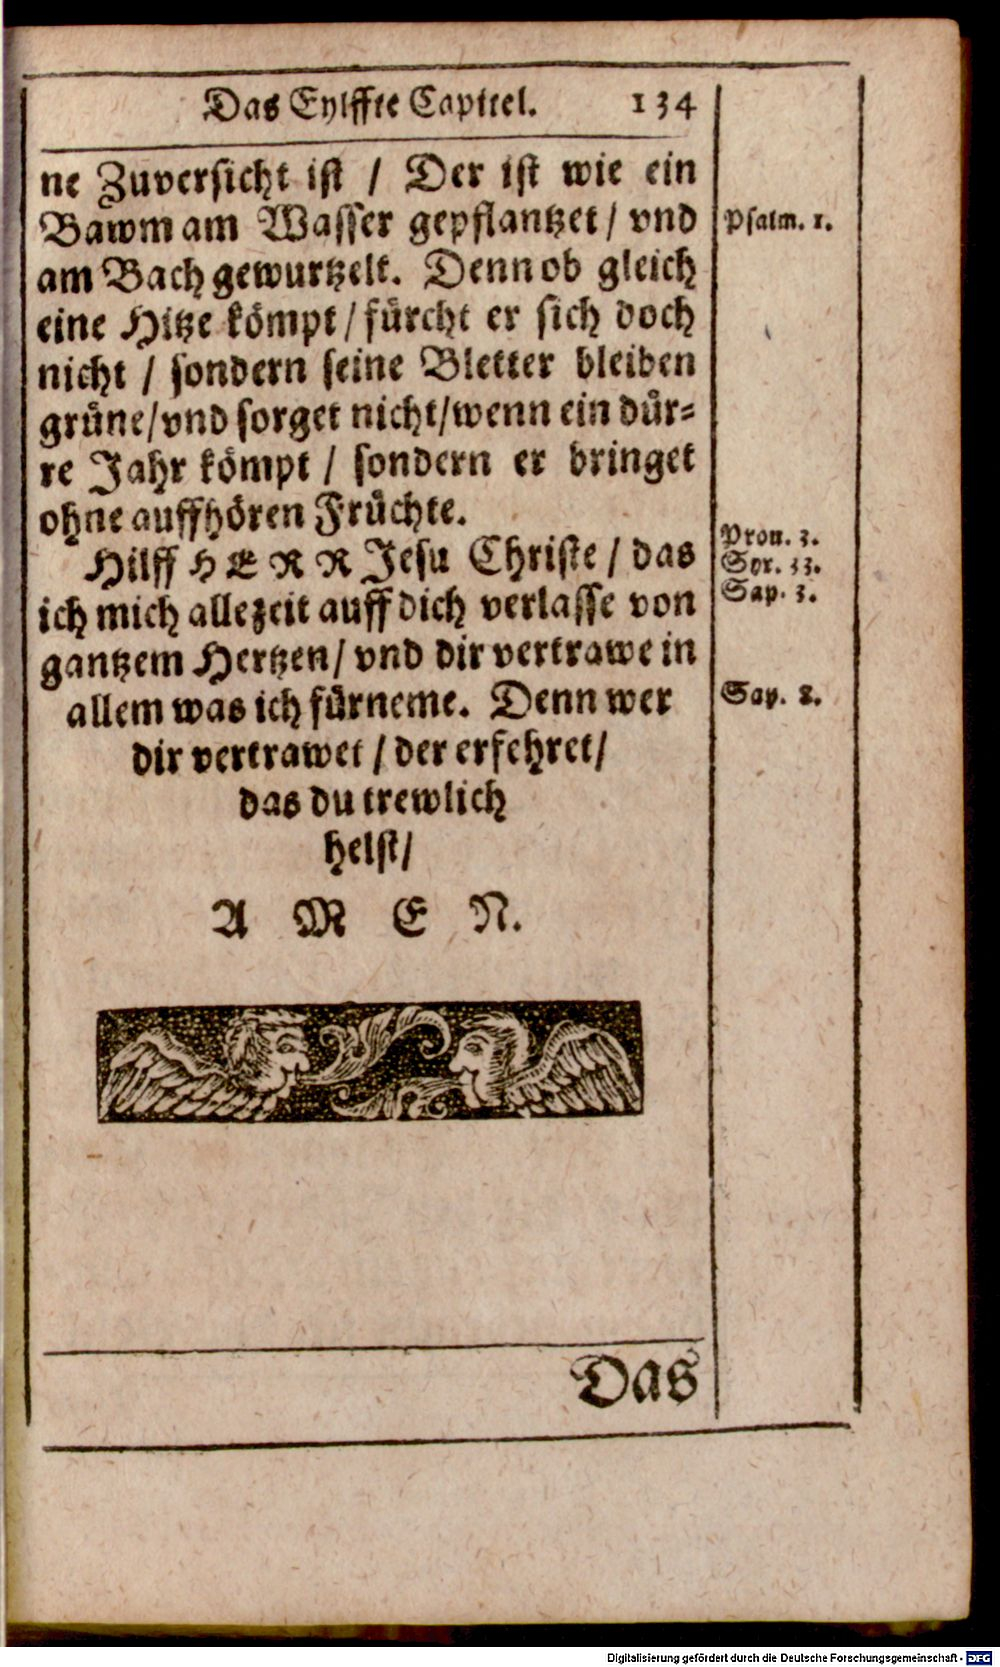 Das Eylffte Capittel. 134
ne Zuversicht ist / Der ist wie ein
Bawm am Wasser gepflantzet / vnd
am Bach gewurtzelt. Denn ob gleich
eine Hitze kömpt / fürcht er sich doch
nicht / sondern seine Bletter bleiben
grüne / vnd sorget nicht / wenn ein dür-
re Jahr kömpt / sondern er bringet
ohne auffhören Früchte.
Hilff HERR Jesu Christe / das
ich mich allezeit auff dich verlasse von
gantzem Hertzen / vnd dir vertrawe in
allem was ich fürneme. Denn wer
dir vertrawet / der erfehret /
das du trewlich
helst /
A M E N.
Psalm. 1.
Prou. 3.
Syr. 33.
Sap. 3.
Sap. 2.
Das
Digitalisierung gefördert durch die Deutsche Forschungsgemeinschaft - DFG